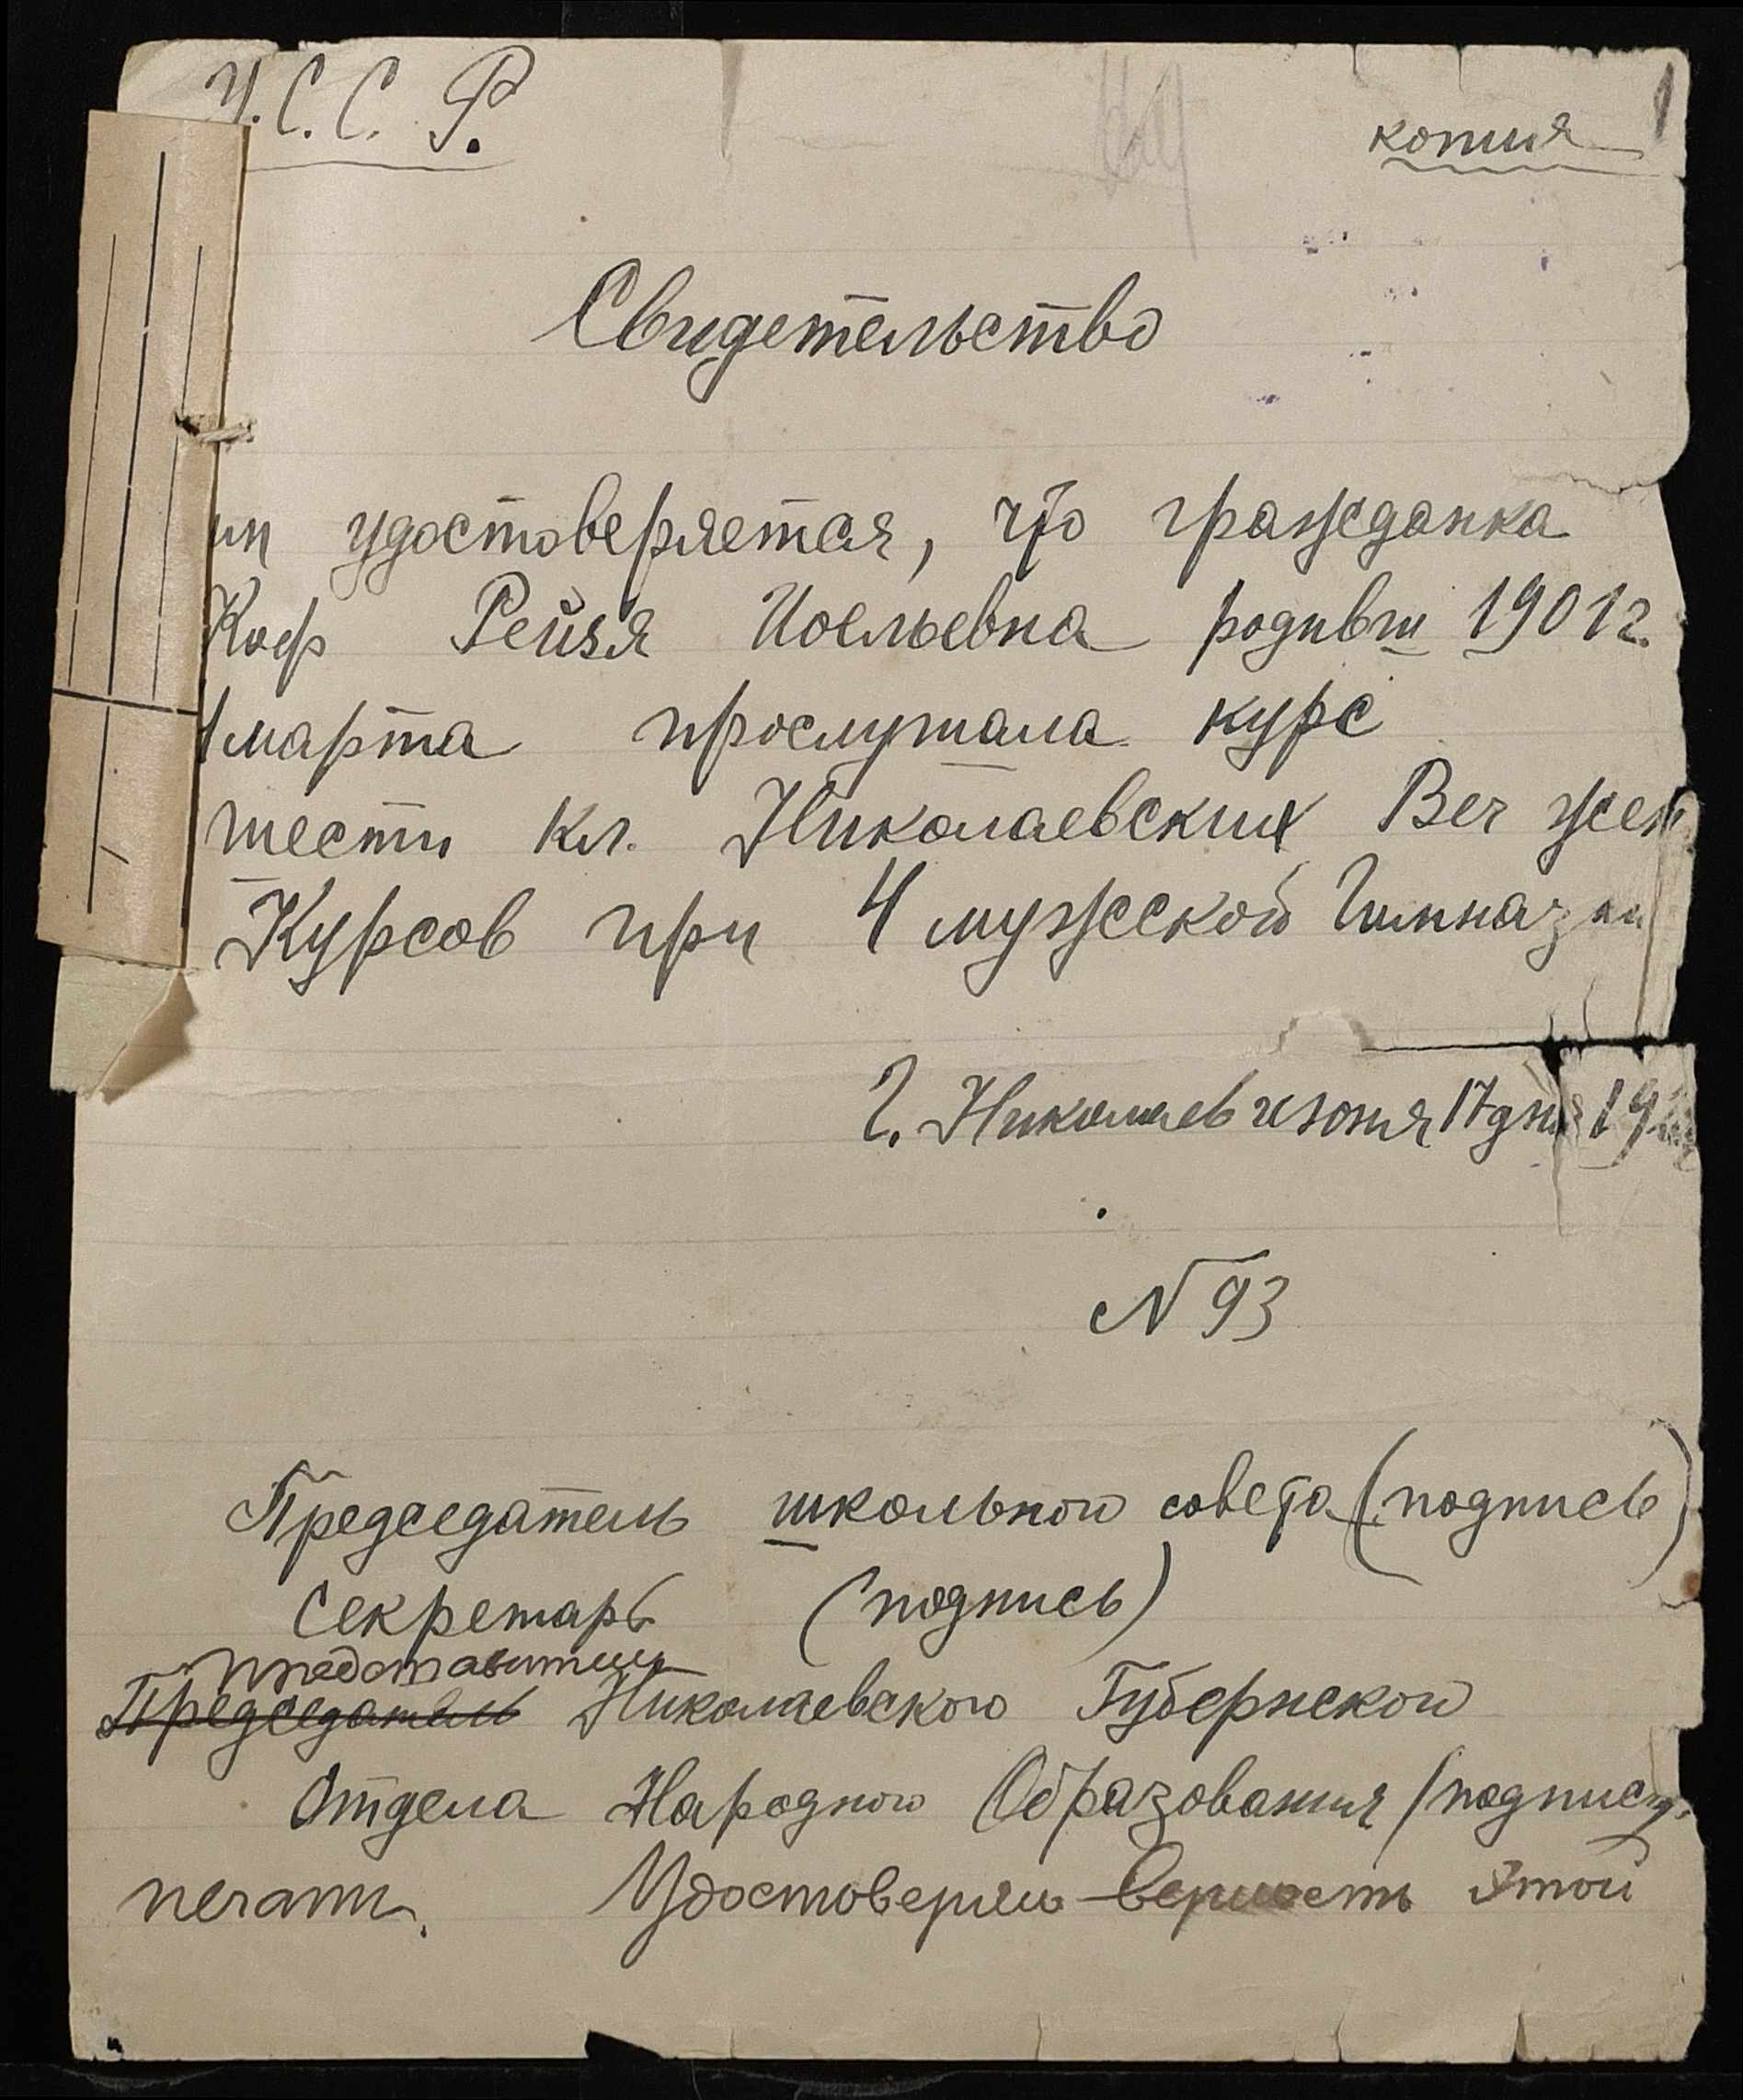 У.С.С.Р.
копия
Свидетельство
им удостоверяется, что гражданка
Каф Рейзя Иоельевна родивш 1901 г.
марта прослушала курс
шести кл. Николаевских Веч жен
Курсов при 4 мужской Гимназии
Г. Николаев июня 17 дня 19
N 93
Председатель школьного совета (подпись)
Секретарь (подпись)
представитель
Председатель Николаевского Губернского
Отдела Народного Образования (подпись,
печати. Удостоверяю верность этой